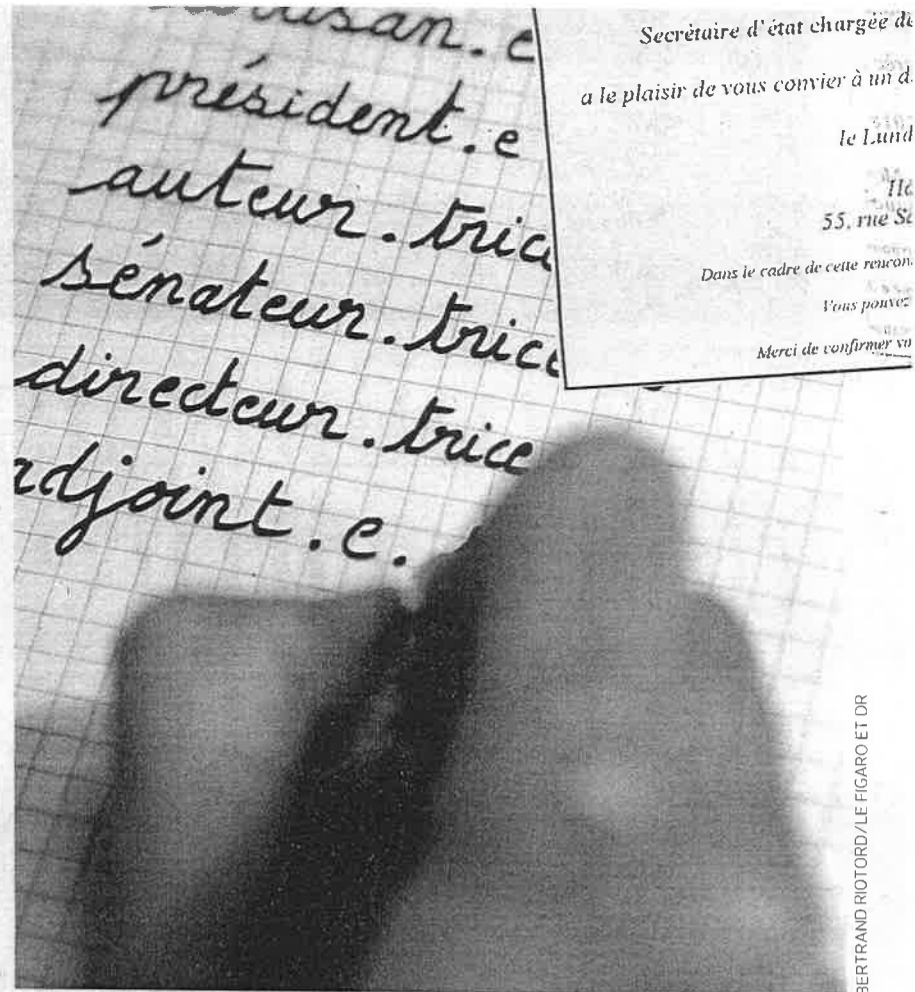 président.e
auteur.trice
sénateur.trice
directeur.trice
adjoint.e.
Secrétaire d'état chargée de
a le plaisir de vous convier à un d
le Lund
55, rue Sa
Dans le cadre de cette rencon
Vous pouvez
Merci de confirmer vo
BERTRAND RIOTORD/LE FIGARO ET DR